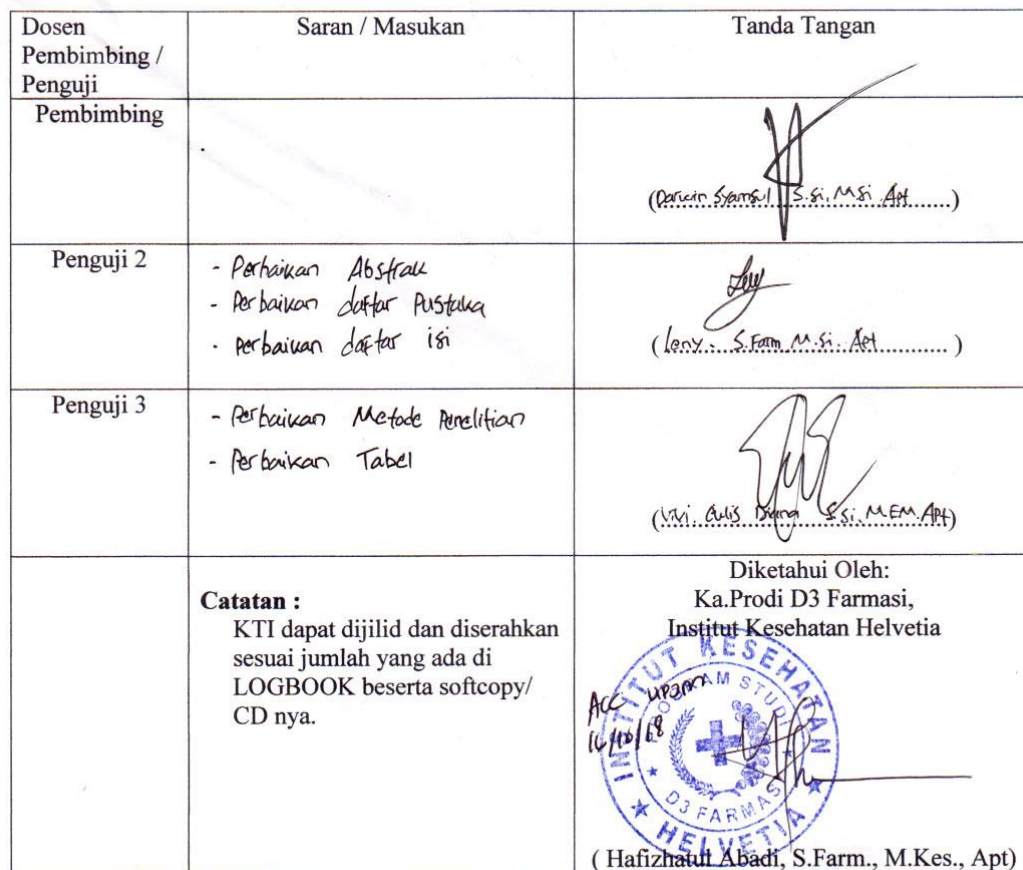 Dosen
Pembimbing /
Penguji
Saran / Masukan
Tanda Tangan
Pembimbing
(Darwin Syamsul S.Si, M.Si. Apt)
Penguji 2
- Perbaikan Abstrak
- Perbaikan daftar Pustaka
- Perbaikan daftar isi
(Leny. S.Farm M.Si. Apt)
Penguji 3
- Perbaikan Metode Penelitian
- Perbaikan Tabel
(Vivi. Diana S.Si, M.EM. Apt)
Catatan :
KTI dapat dijilid dan diserahkan
sesuai jumlah yang ada di
LOGBOOK beserta softcopy/
CD nya.
Diketahui Oleh:
Ka.Prodi D3 Farmasi,
Institut Kesehatan Helvetia
INSTITUT KESEHATAN
PROGRAM STUDI
D3 FARMASI
HELVETIA
ACC
( Hafizhatul Abadi, S.Farm., M.Kes., Apt)